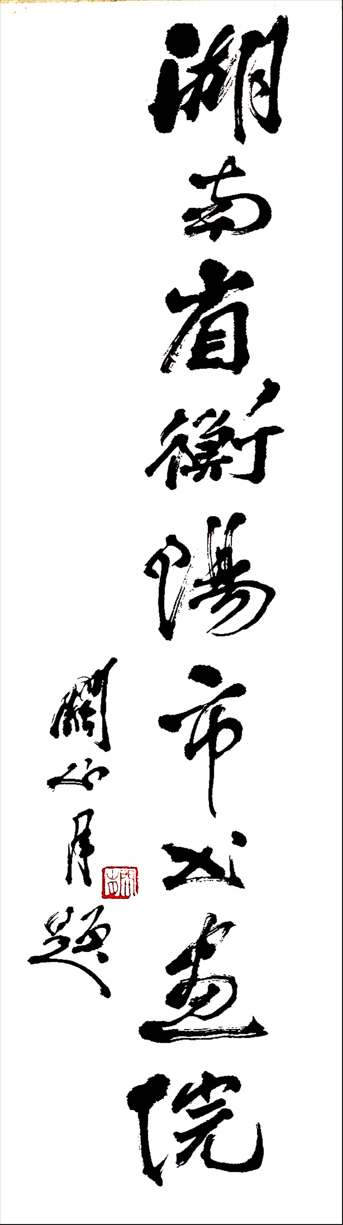 湖南省衡陽市书畫院
關山月題